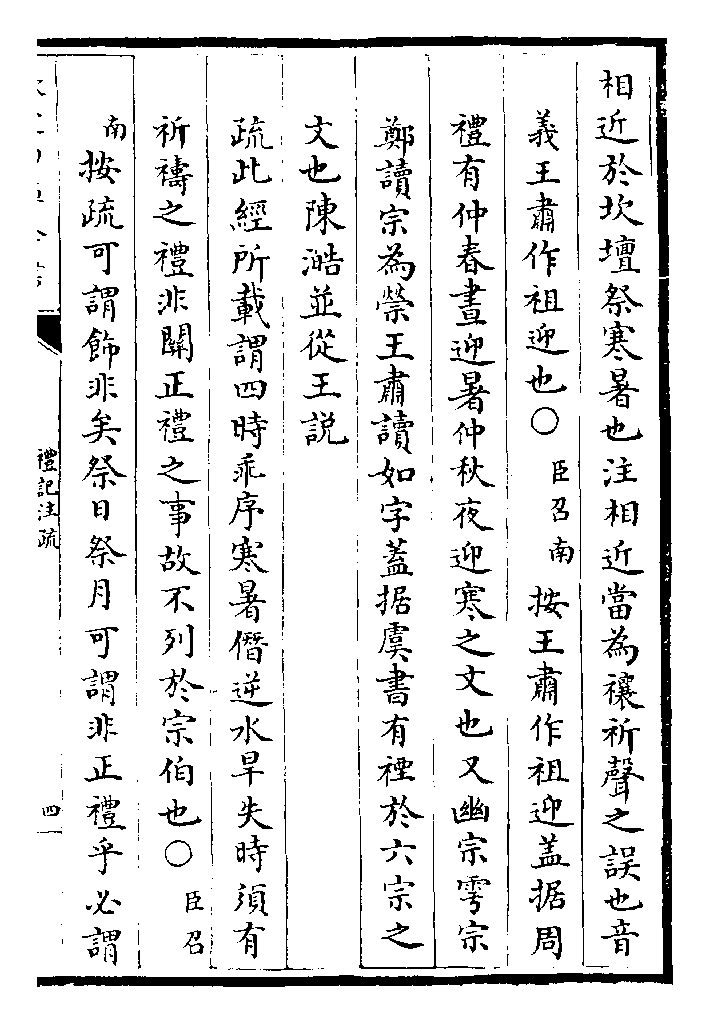 相近於坎壇祭寒暑也注相近當為禳祈聲之誤也音
義王肅作祖迎也○臣召南按王肅作祖迎蓋据周
禮有仲春晝迎暑仲秋夜迎寒之文也又幽宗雩宗
鄭讀宗為禜王肅讀如字蓋据虞書有禋於六宗之
文也陳澔並從王説
疏此經所載謂四時乖序寒暑僭逆水旱失時須有
祈禱之禮非關正禮之事故不列於宗伯也○臣召
南按疏可謂飾非矣祭日祭月可謂非正禮乎必謂
禮記注疏
四